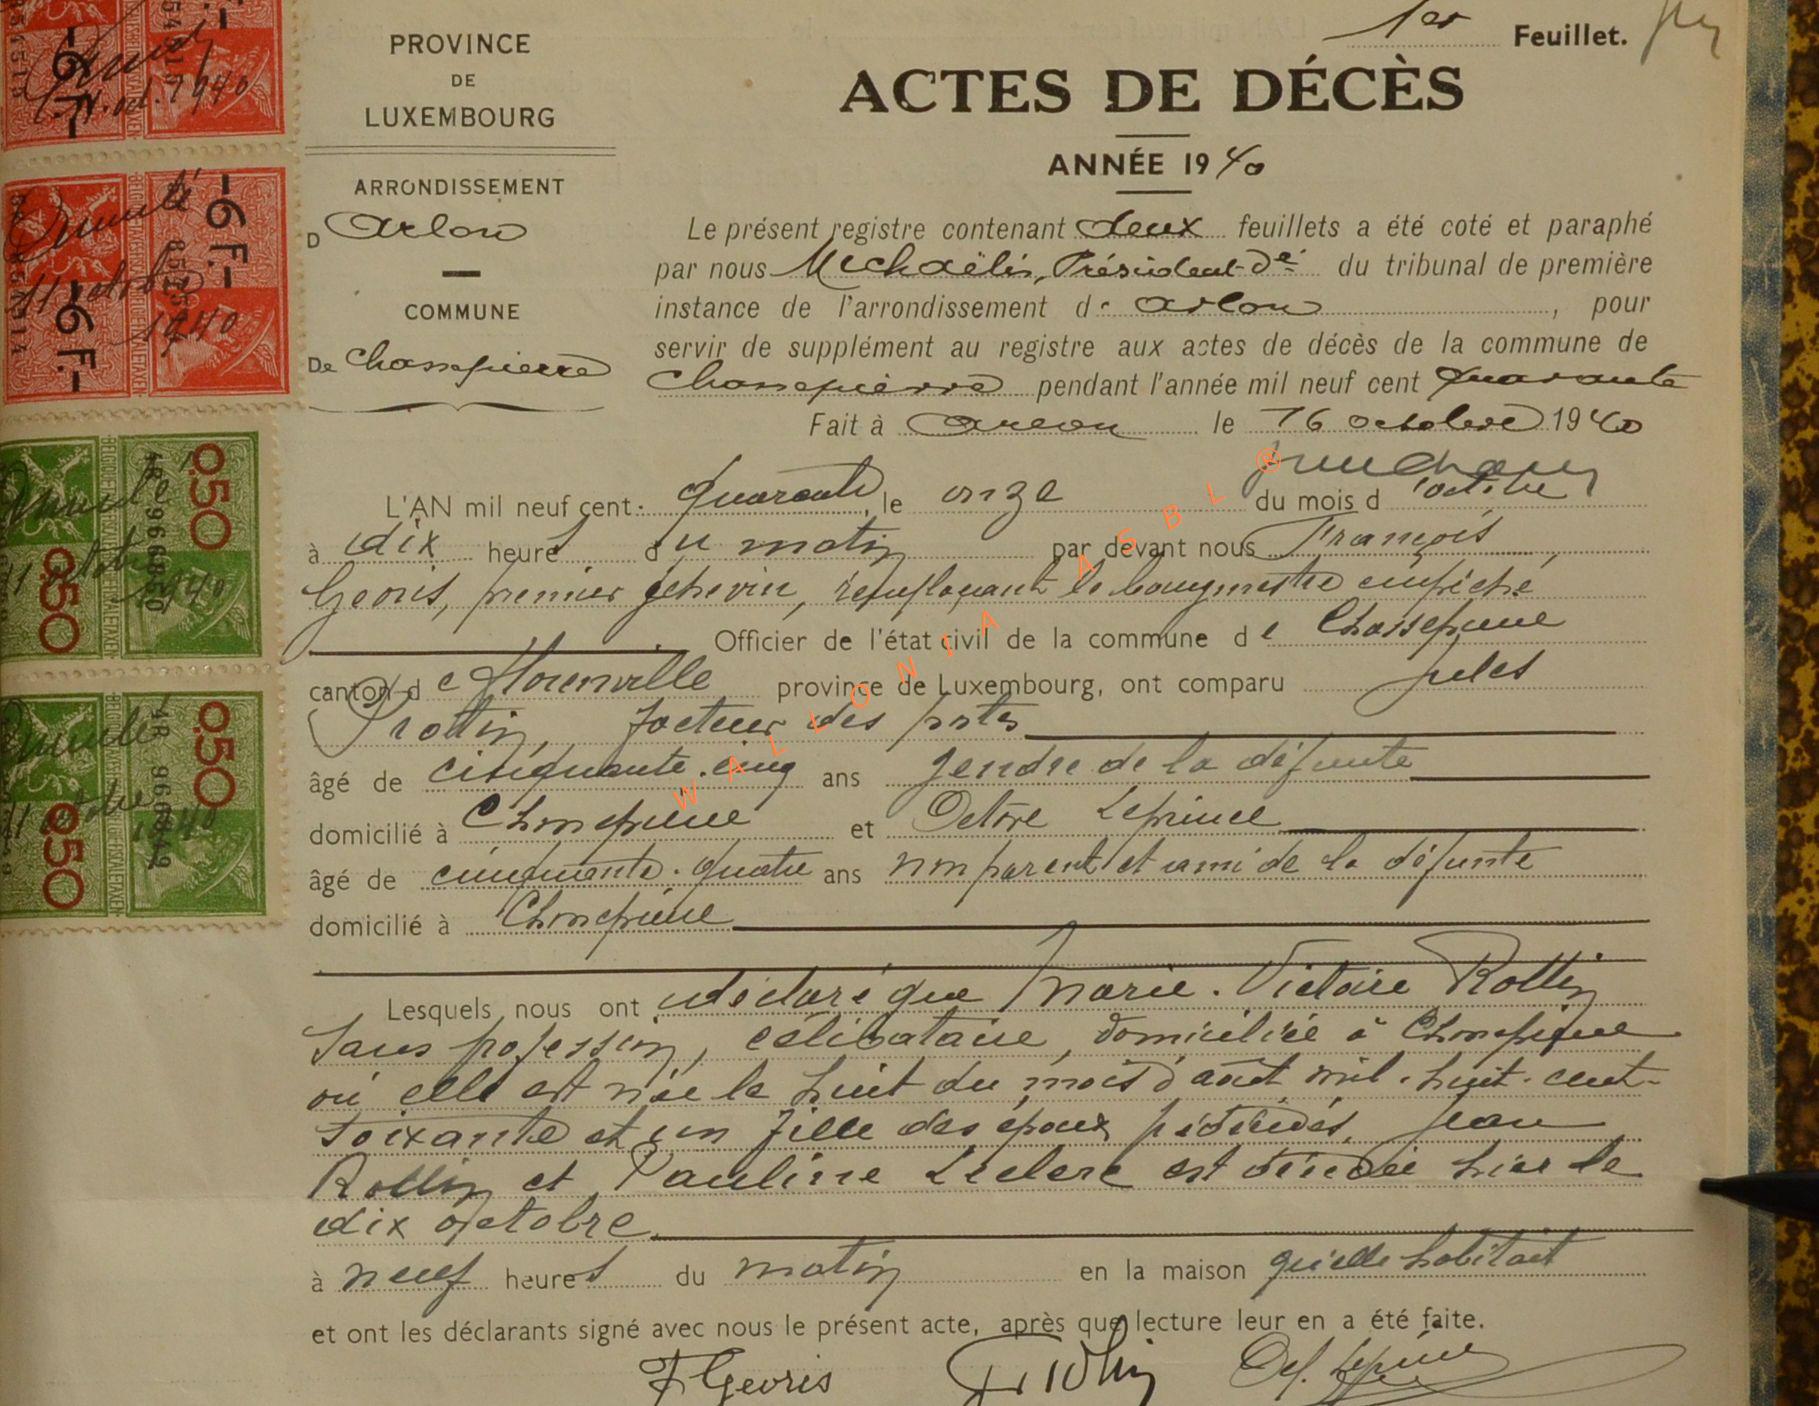 1er Feuillet.
PROVINCE
DE
LUXEMBOURG
ARRONDISSEMENT
D Arlon
COMMUNE
De Chassepierre
ACTES DE DÉCÈS
ANNÉE 1940
Le présent registre contenant deux feuillets a été coté et paraphé
par nous Michaëlis, Président du tribunal de première
instance de l'arrondissement d' Arlon, pour
servir de supplément au registre aux actes de décès de la commune de
Chassepierre pendant l'année mil neuf cent quarante
Fait à Arlon le 16 octobre 1940
L'AN mil neuf cent quarante, le onze du mois d'octobre
à dix heures du matin par devant nous François
Georis, premier échevin, remplaçant le bourgmestre empêché
Officier de l'état civil de la commune de Chassepierre
canton de Florenville province de Luxembourg, ont comparu Jules
Frottin, facteur des postes
âgé de cinquante-cinq ans gendre de la défunte
domicilié à Chassepierre et Octave Leprince
âgé de cinquante-quatre ans non parent et ami de la défunte
domicilié à Chassepierre
Lesquels nous ont déclaré que Marie-Victoire Rollin
sans profession, célibataire, domiciliée à Chassepierre
où elle est née le huit du mois d'août mil-huit-cent-
soixante et un fille des époux prédécédés, Jean
Rollin et Pauline Leclerc est décédée hier le
dix octobre
à neuf heures du matin en la maison qu'elle habitait
et ont les déclarants signé avec nous le présent acte, après que lecture leur en a été faite.
F Georis
WALLONIA ASBL ®
-6 F.-
-6 F.-
Annulé
11 octobre
1940
-6 F.-
-6 F.-
0.50
0.50
Annulé
11 octobre
1940
0.50
0.50
Annulé
11 octobre
1940